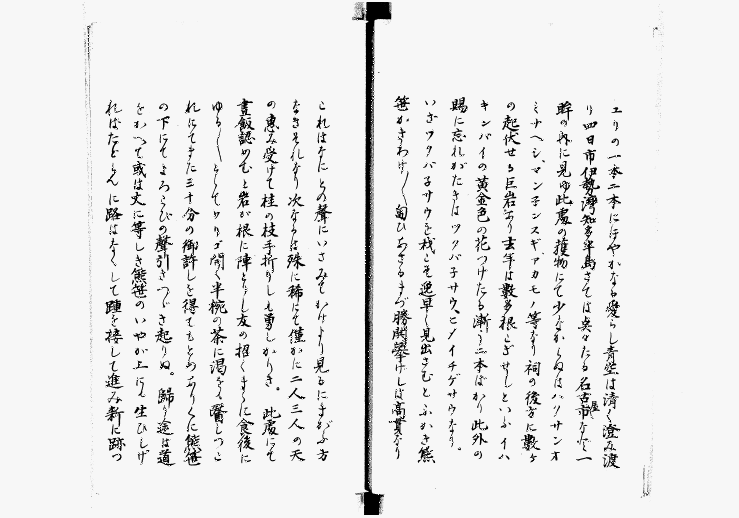 ユリの一本二本にほやかなる愛らし青空は清く澄み渡
り四日市伊勢湾知多半島さては奕々たる名古屋市など一
眸の内に見ゆ此處の獲物にて少なからぬはハクサンオ
ミナヘシ、マンネンスギ、アカモノ等なり祠の後方に數ヶ
の起伏せる巨岩あり去年は數多根こぎせしといふイハ
キンバイの黄金色の花つけたる漸く二本ばかり此外の
賜に忘れがたきはツクバ子サウ、ヒメイチゲサウなり。
いざツクバ子サウを我こそ逸早く見出さむとふかき熊
笹かきわけ〱匍ひあさるまづ勝鬨擧げしは高貫なり
これはなたとの聲にいさみてかけより見るにまがふ方
なきそれなり次なるは殊に稀にて僅かに二人三人の天
の惠み受けて桂の枝手折りしも勇しかりき。此處にて
晝飯認めむと岩が根に陣とりし友の招くまゝに食後に
ゆる〱としてワリゴ開く半椀の茶に渇を醫しつこ
れにてまた三十分の御許しを得てもとめありくに熊笹
の下にてよろこびの聲引きつゞき起りぬ。歸り途は道
をかへて或は丈に等しき熊笹のいやが上に生ひしげ
ればたどらんに路はなくして踵を接して進み新に跡つ